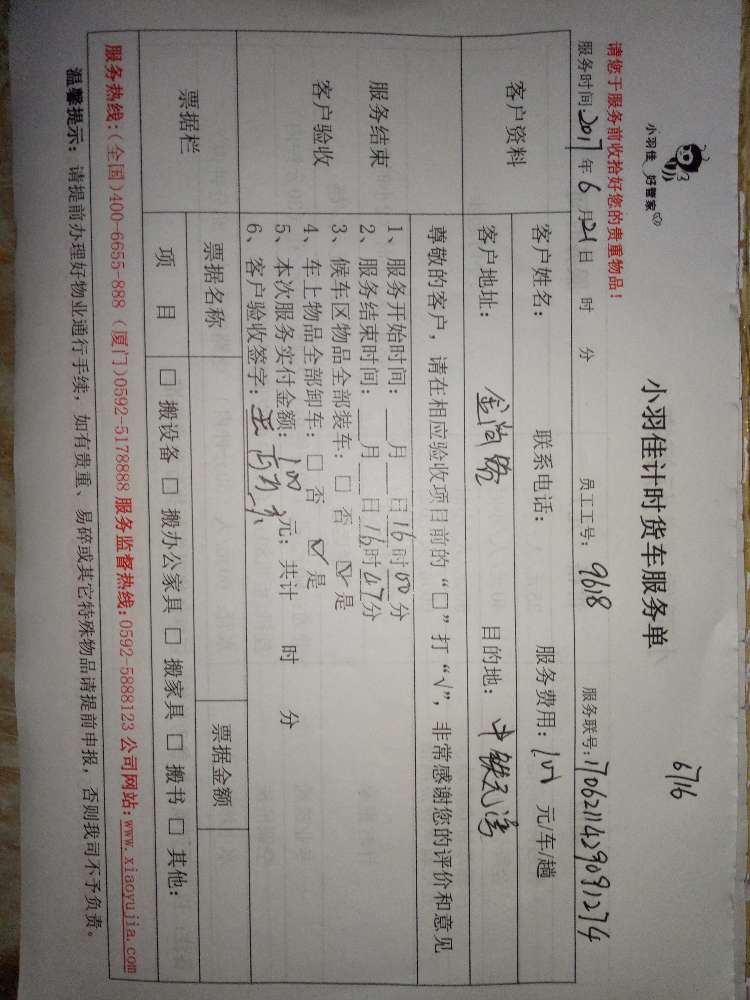 小羽佳 好管家
小羽佳计时货车服务单
6716
请您于服务前收拾好您的贵重物品！
服务时间2017年6月21日 时 分 员工工号：9618 服务联号：1706211429091274
客户资料
客户姓名： 联系电话： 服务费用：100 元/车/趟
客户地址：金尚路 目的地：中铁元湾
尊敬的客户，请在相应验收项目前的“□”打“√”，非常感谢您的评价和意见
服务结束
客户验收
1、服务开始时间：___月___日16时00分
2、服务结束时间：___月___日16时47分
3、候车区物品全部装车：□ 否 ☑ 是
4、车上物品全部卸车：□ 否 ☑ 是
5、本次服务实付金额：100元；共计 时 分
6、客户验收签字：
票据栏
票据名称 票据金额
项 目 □ 搬设备 □ 搬办公家具 □ 搬家具 □ 搬书 □ 其他：
服务热线：(全国)400-6655-888 (厦门)0592-5178888 服务监督热线：0592-5888123 公司网站：www.xiaoyujia.com
温馨提示：请提前办理好物业通行手续，如有贵重、易碎或其它特殊物品请提前申报，否则我司不予负责。